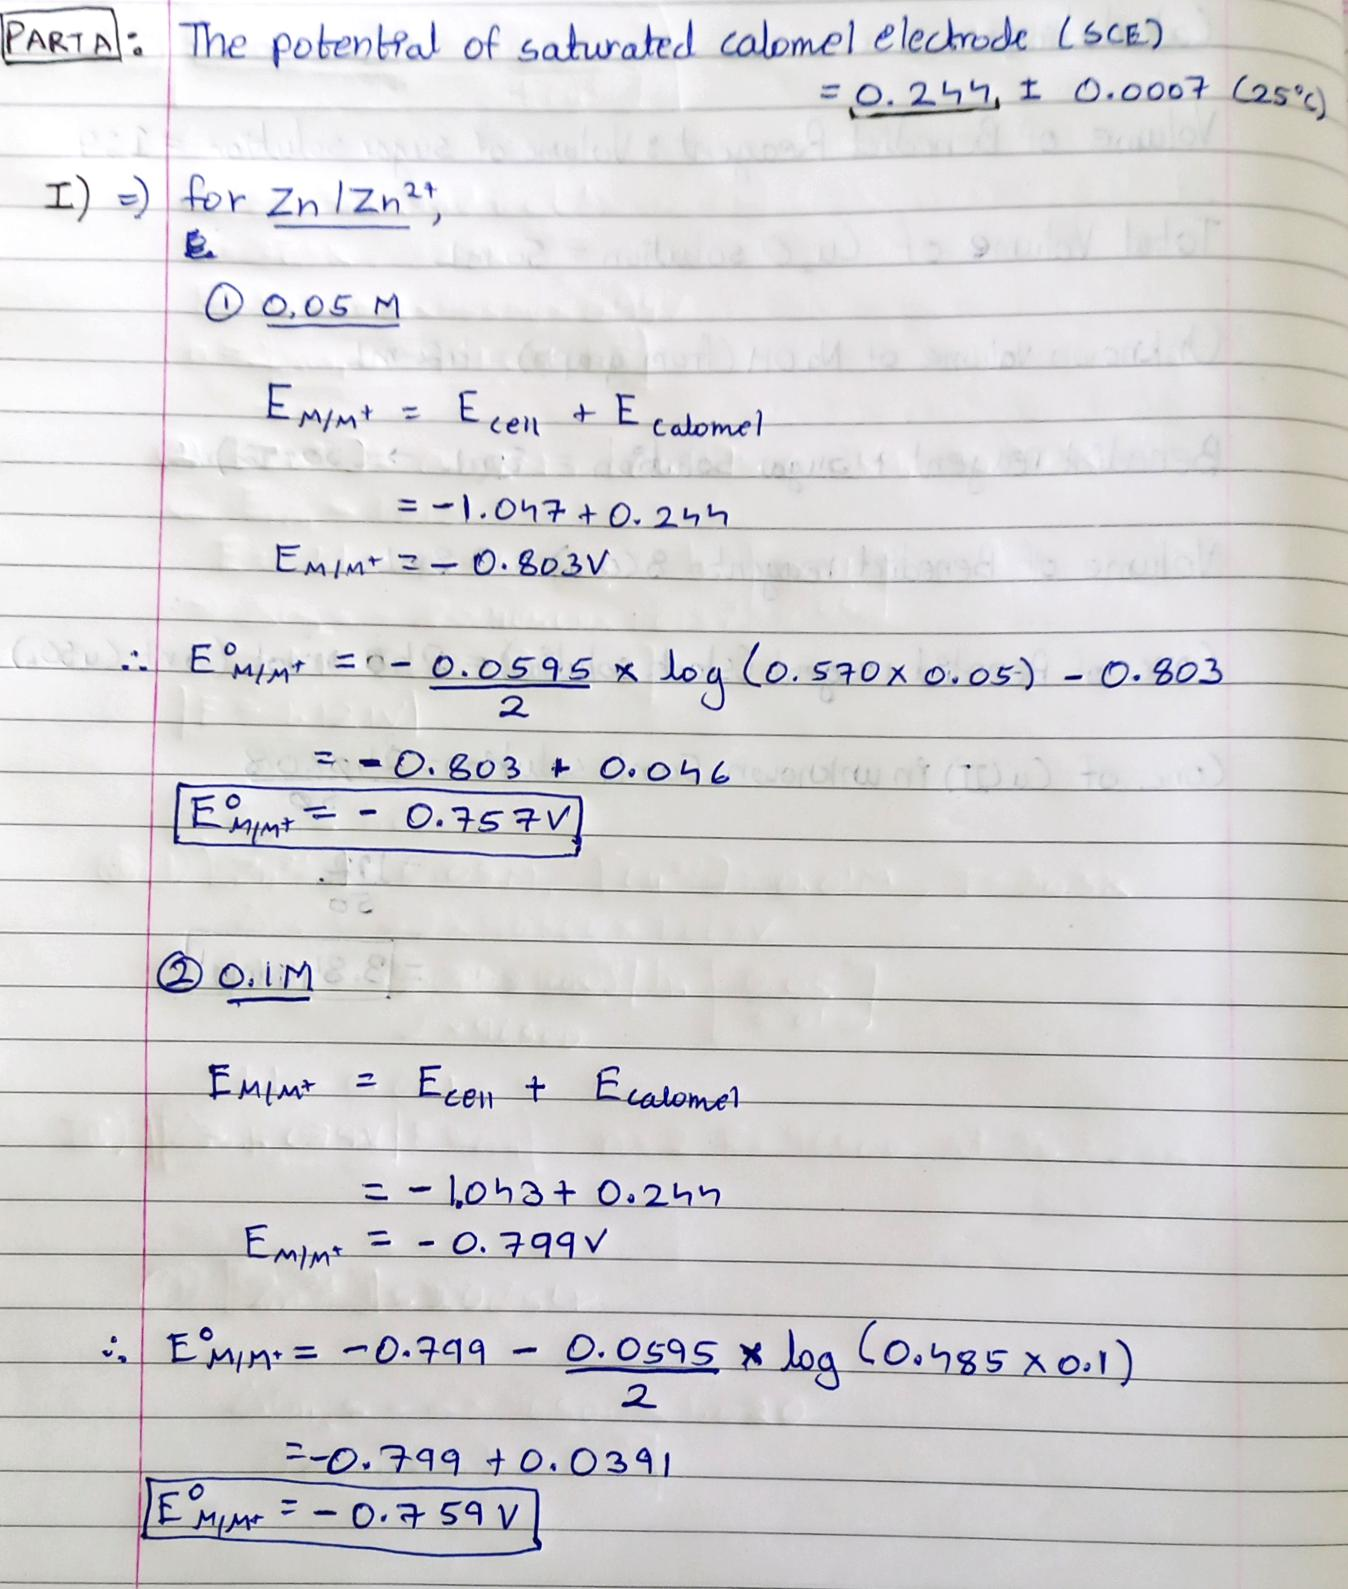 PART A : The potential of saturated calomel electrode (SCE)
= 0.244, ± 0.0007 (25°C)
I) ⇒ for Zn/Zn²⁺,
① 0.05 M
E M/M+ = E cell + E calomel
= -1.047 + 0.244
E M/M+ = - 0.803V
∴ E° M/M+ = - 0.0595/2 × log (0.570 × 0.05) - 0.803
= - 0.803 + 0.046
E° M/M+ = - 0.757V
② 0.1M
E M/M+ = E cell + E calomel
= - 1.043 + 0.244
E M/M+ = - 0.799V
∴ E° M/M+ = -0.799 - 0.0595/2 × log (0.485 × 0.1)
= -0.799 + 0.0391
E° M/M+ = - 0.759 V